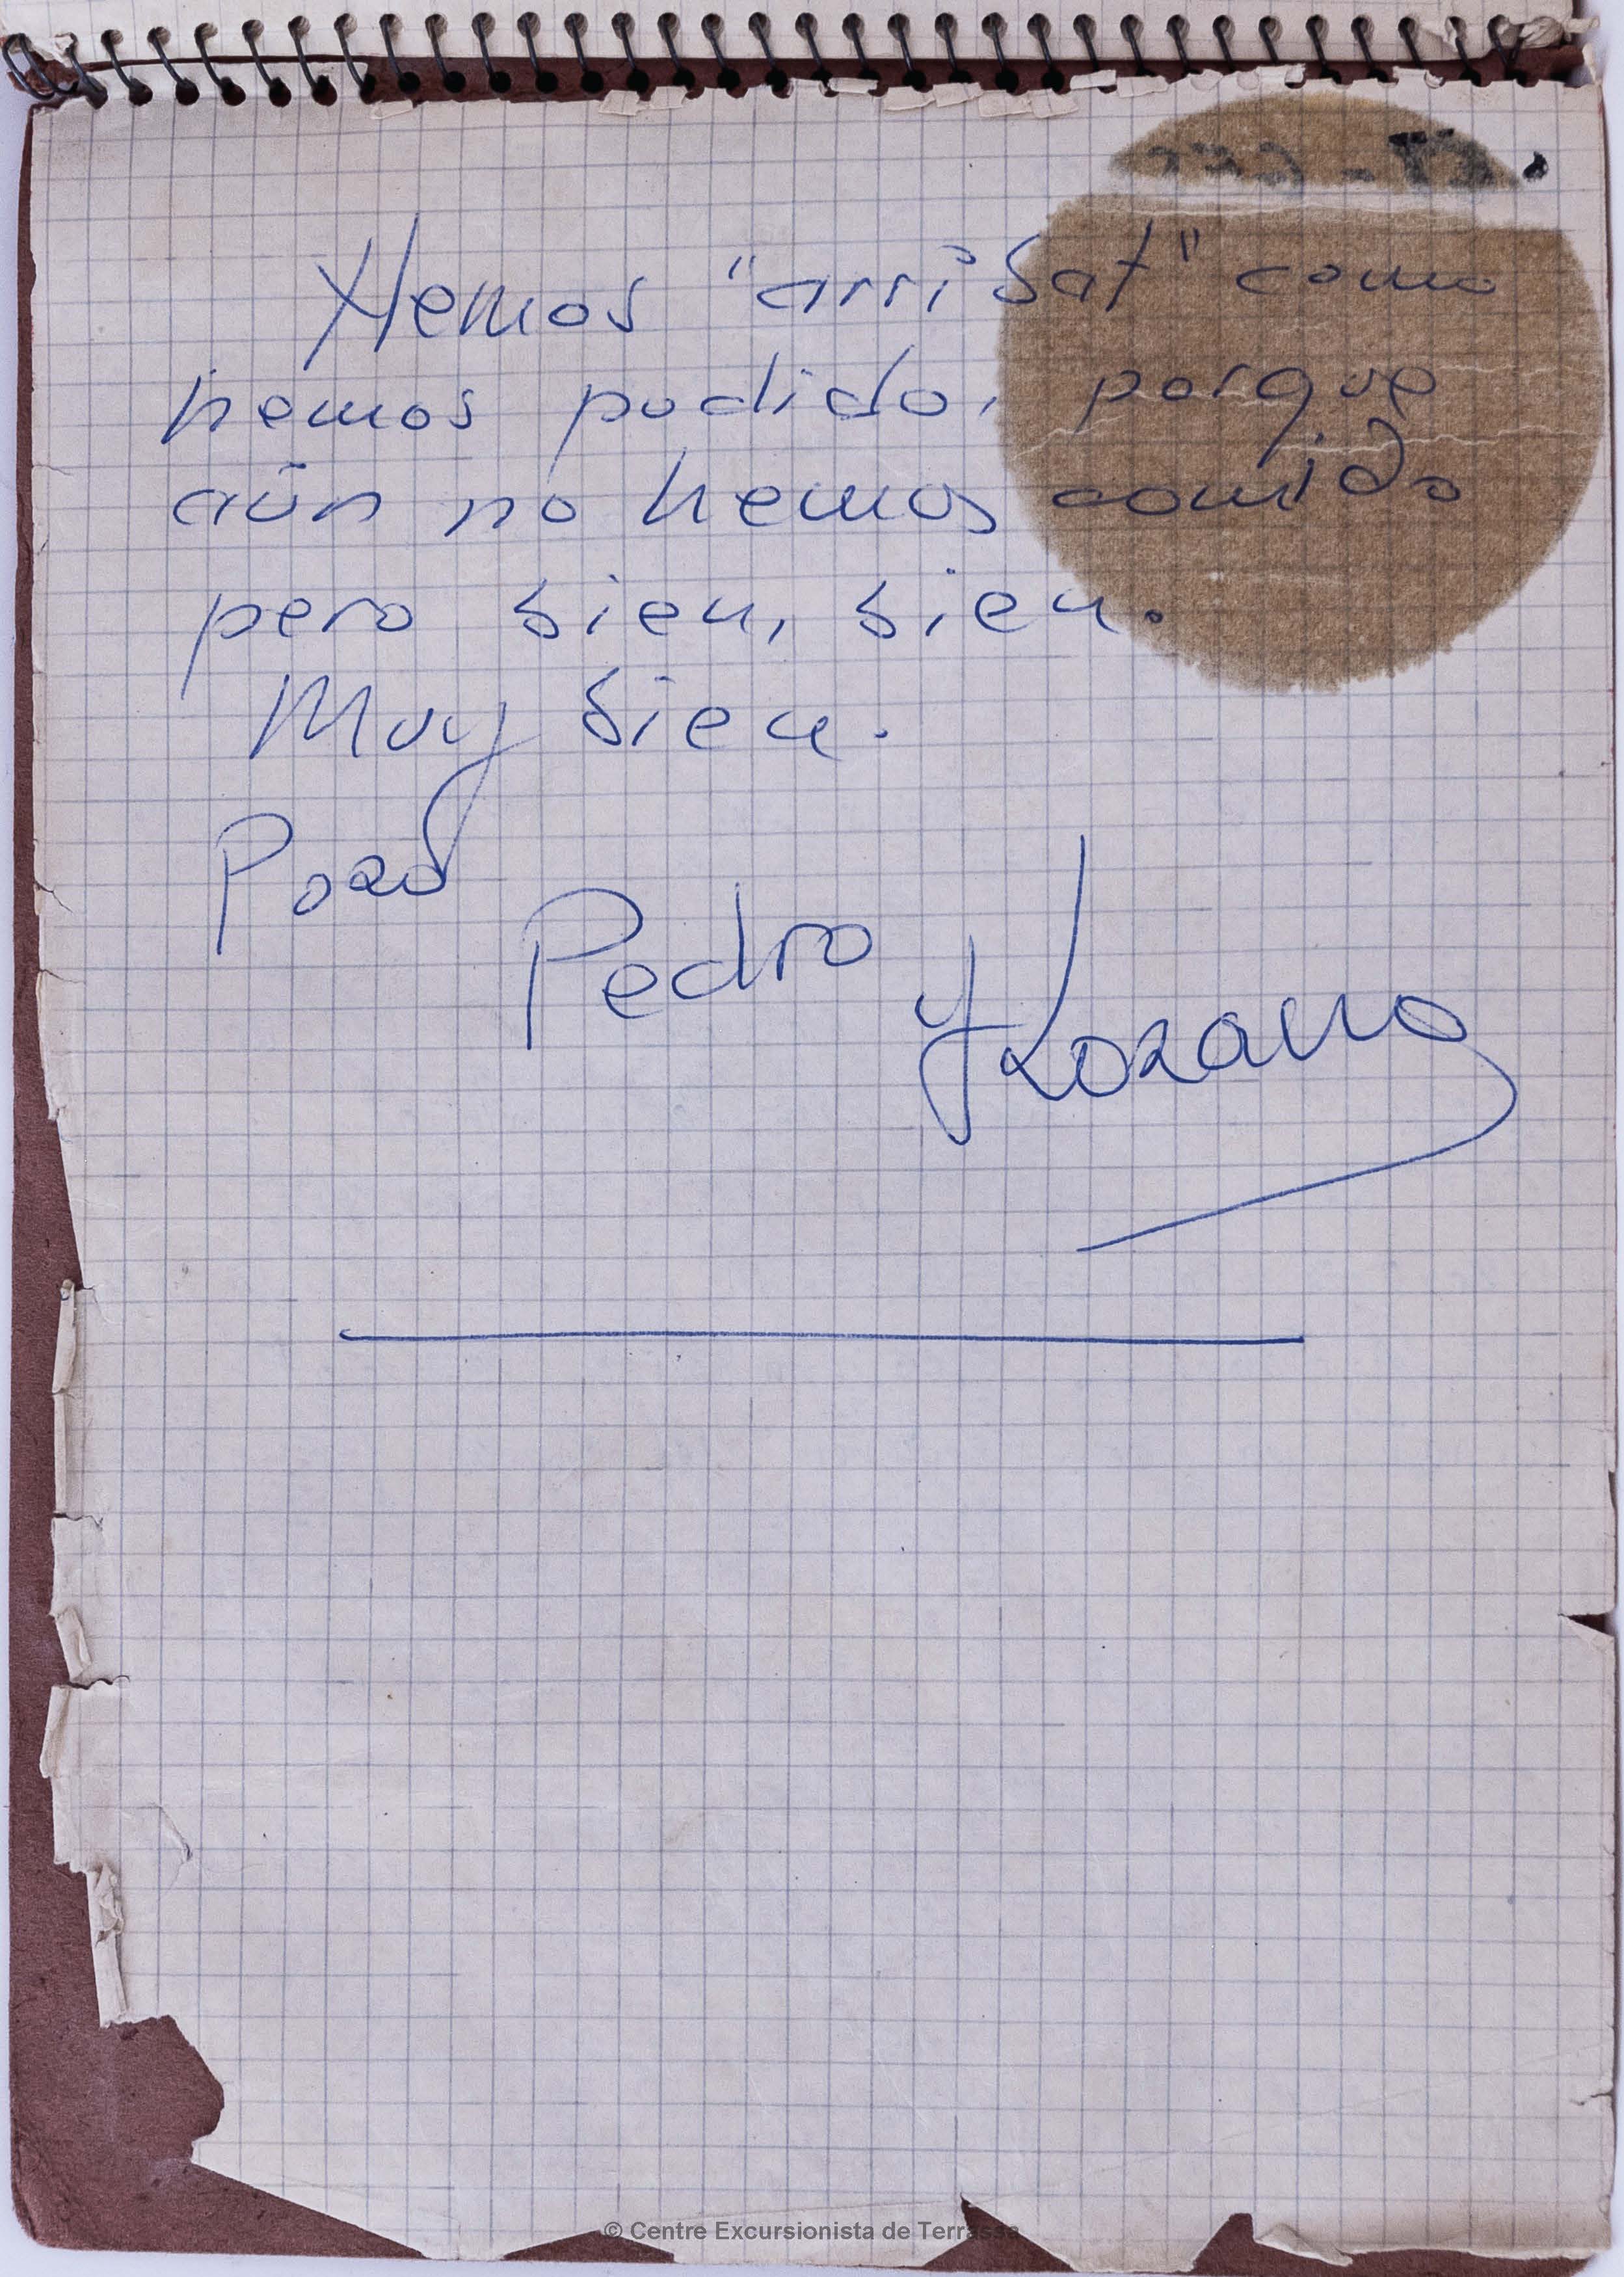 Hemos "arribat" como
hemos podido, porque
aún no hemos comido
pero bien, bien.
Muy bien.
Pozo
Pedro
y Lozano
© Centre Excursionista de Terrassa